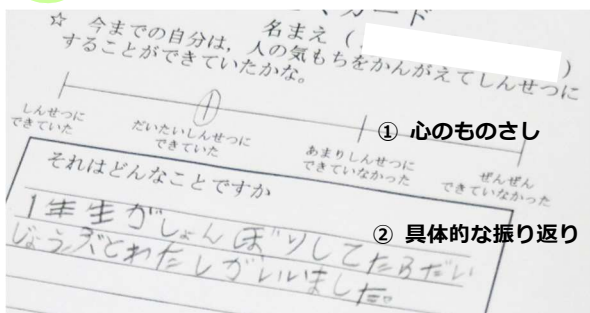 カード
名まえ（　　　）
☆　今までの自分は，人の気もちをかんがえてしんせつに
することができていたかな。
しんせつに
できていた
だいたいしんせつに
できていた
あまりしんせつに
できていなかった
ぜんぜん
できていなかった
① 心のものさし
それはどんなことですか
② 具体的な振り返り
1年生がしょんぼりしてたらだい
じょうぶとわたしがいいました。